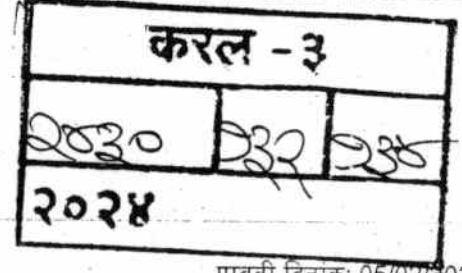 करल - ३
२४३० १३२ १३४
२०२४
पावती दिनांक: 05/02/20